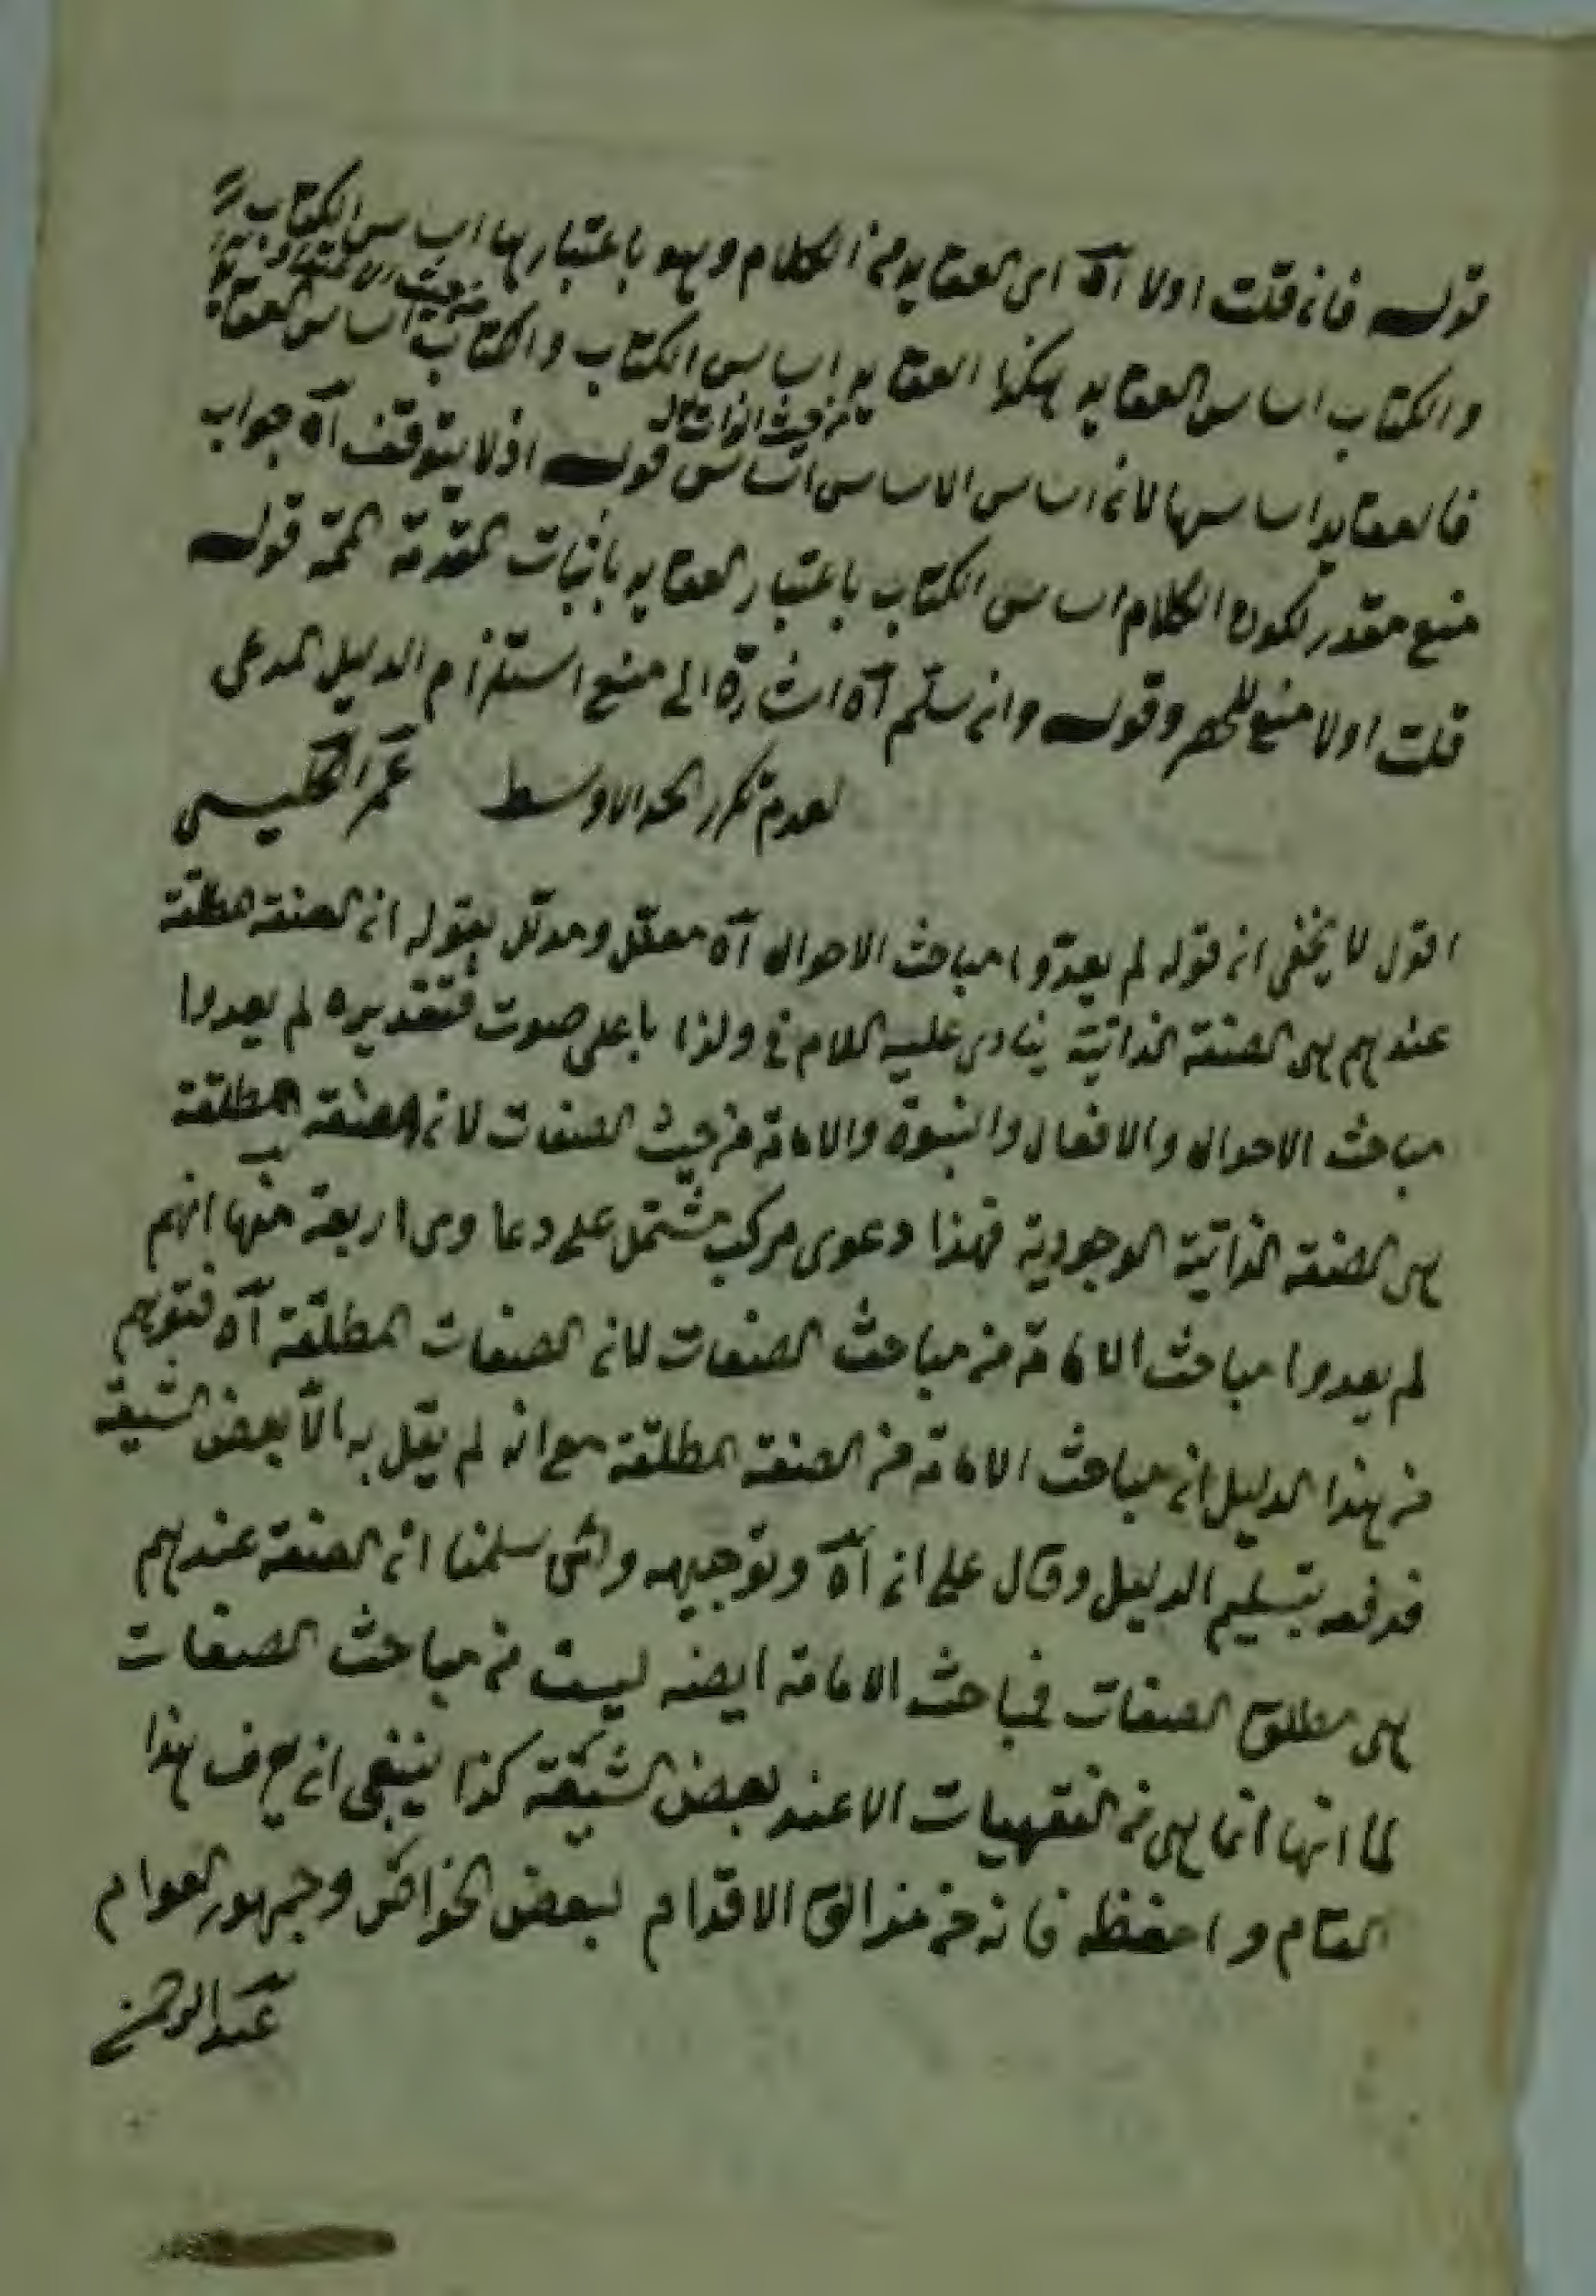 قوله فان قلت اولا آه اى العقايد من الكلام وهو باعتبارها اساس الكتاب
والكتاب اساس العقايد هكذا العقايد اساس الكتاب والكتاب اساس العقايد
من حيث الاعتداد
فالعقايد اساسها لان اساس الاساس اساس قوله اذ لا يتوقف آه جواب
من حيث الذات
منع مقدر لكون الكلام اساس الكتاب باعتبار العقايد باثبات المقدمة الممنوعة قوله
قلت اولا منع للحصر وقوله وان سلم آه اشارة الى منع استلزام الدليل المدعى
لعدم تكرر الحد الاوسط عمر
اقول لا يخفى ان قوله لم يعدّوا مباحث الاحوال آه معلل ومدلل بقوله ان الصفة المطلقة
عندهم هى الصفة الذاتية ينادى عليه الكلام باعلى صوت فتقديره لم يعدوا
مباحث الاحوال والافعال والنبوة والامامة من حيث الصفات لان الصفة المطلقة
هى الصفة الذاتية الوجودية فهذا دعوى مركب مشتمل على دعاوى اربعة منها انهم
لم يعدوا مباحث الامامة من مباحث الصفات لان الصفات المطلقة آه فتوهم
من هذا الدليل ان مباحث الامامة من الصفة المطلقة مع انه لم يقل به الا بعض الشيعة
فدفعه بتسليم الدليل وقال على ان آه وتوجيهه سلمنا ان الصفة عندهم
هى مطلق الصفات فمباحث الامامة ايضه ليست من مباحث الصفات
لما انها انما هى من الفقهيات الا عند بعض الشيعة كذا ينبغى ان هذا
المقام واحفظه فانه من مزالق الاقدام لبعض الخواص وجمهور العوام
عبد الرحمن